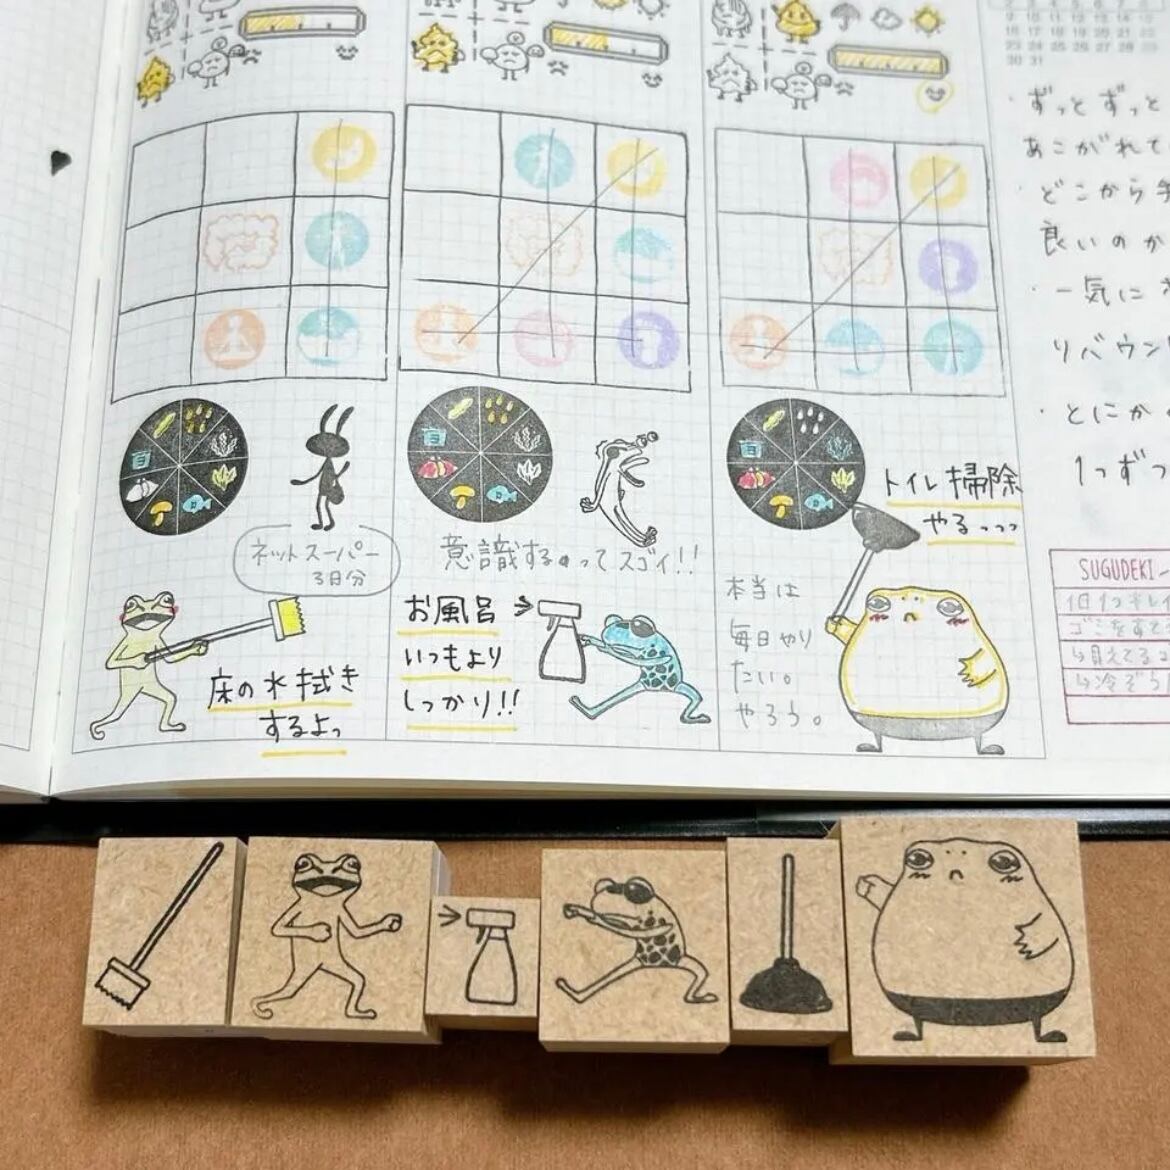 9 10 11 12 13 14 15
16 17 18 19 20 21 22
23 24 25 26 27 28 29
30 31
・ずっと ずっと
あこがれて
・どこから
良いのか
・一気に
リバウン
・とにか
1つずつ
ネットスーパー
3日分
意識するってスゴイ!!
トイレ掃除
やるっっっ
本当は
毎日やり
たい。
やろう。
お風呂
いつもより
しっかり!!
床の水拭き
するよっ
SUGUDEKI